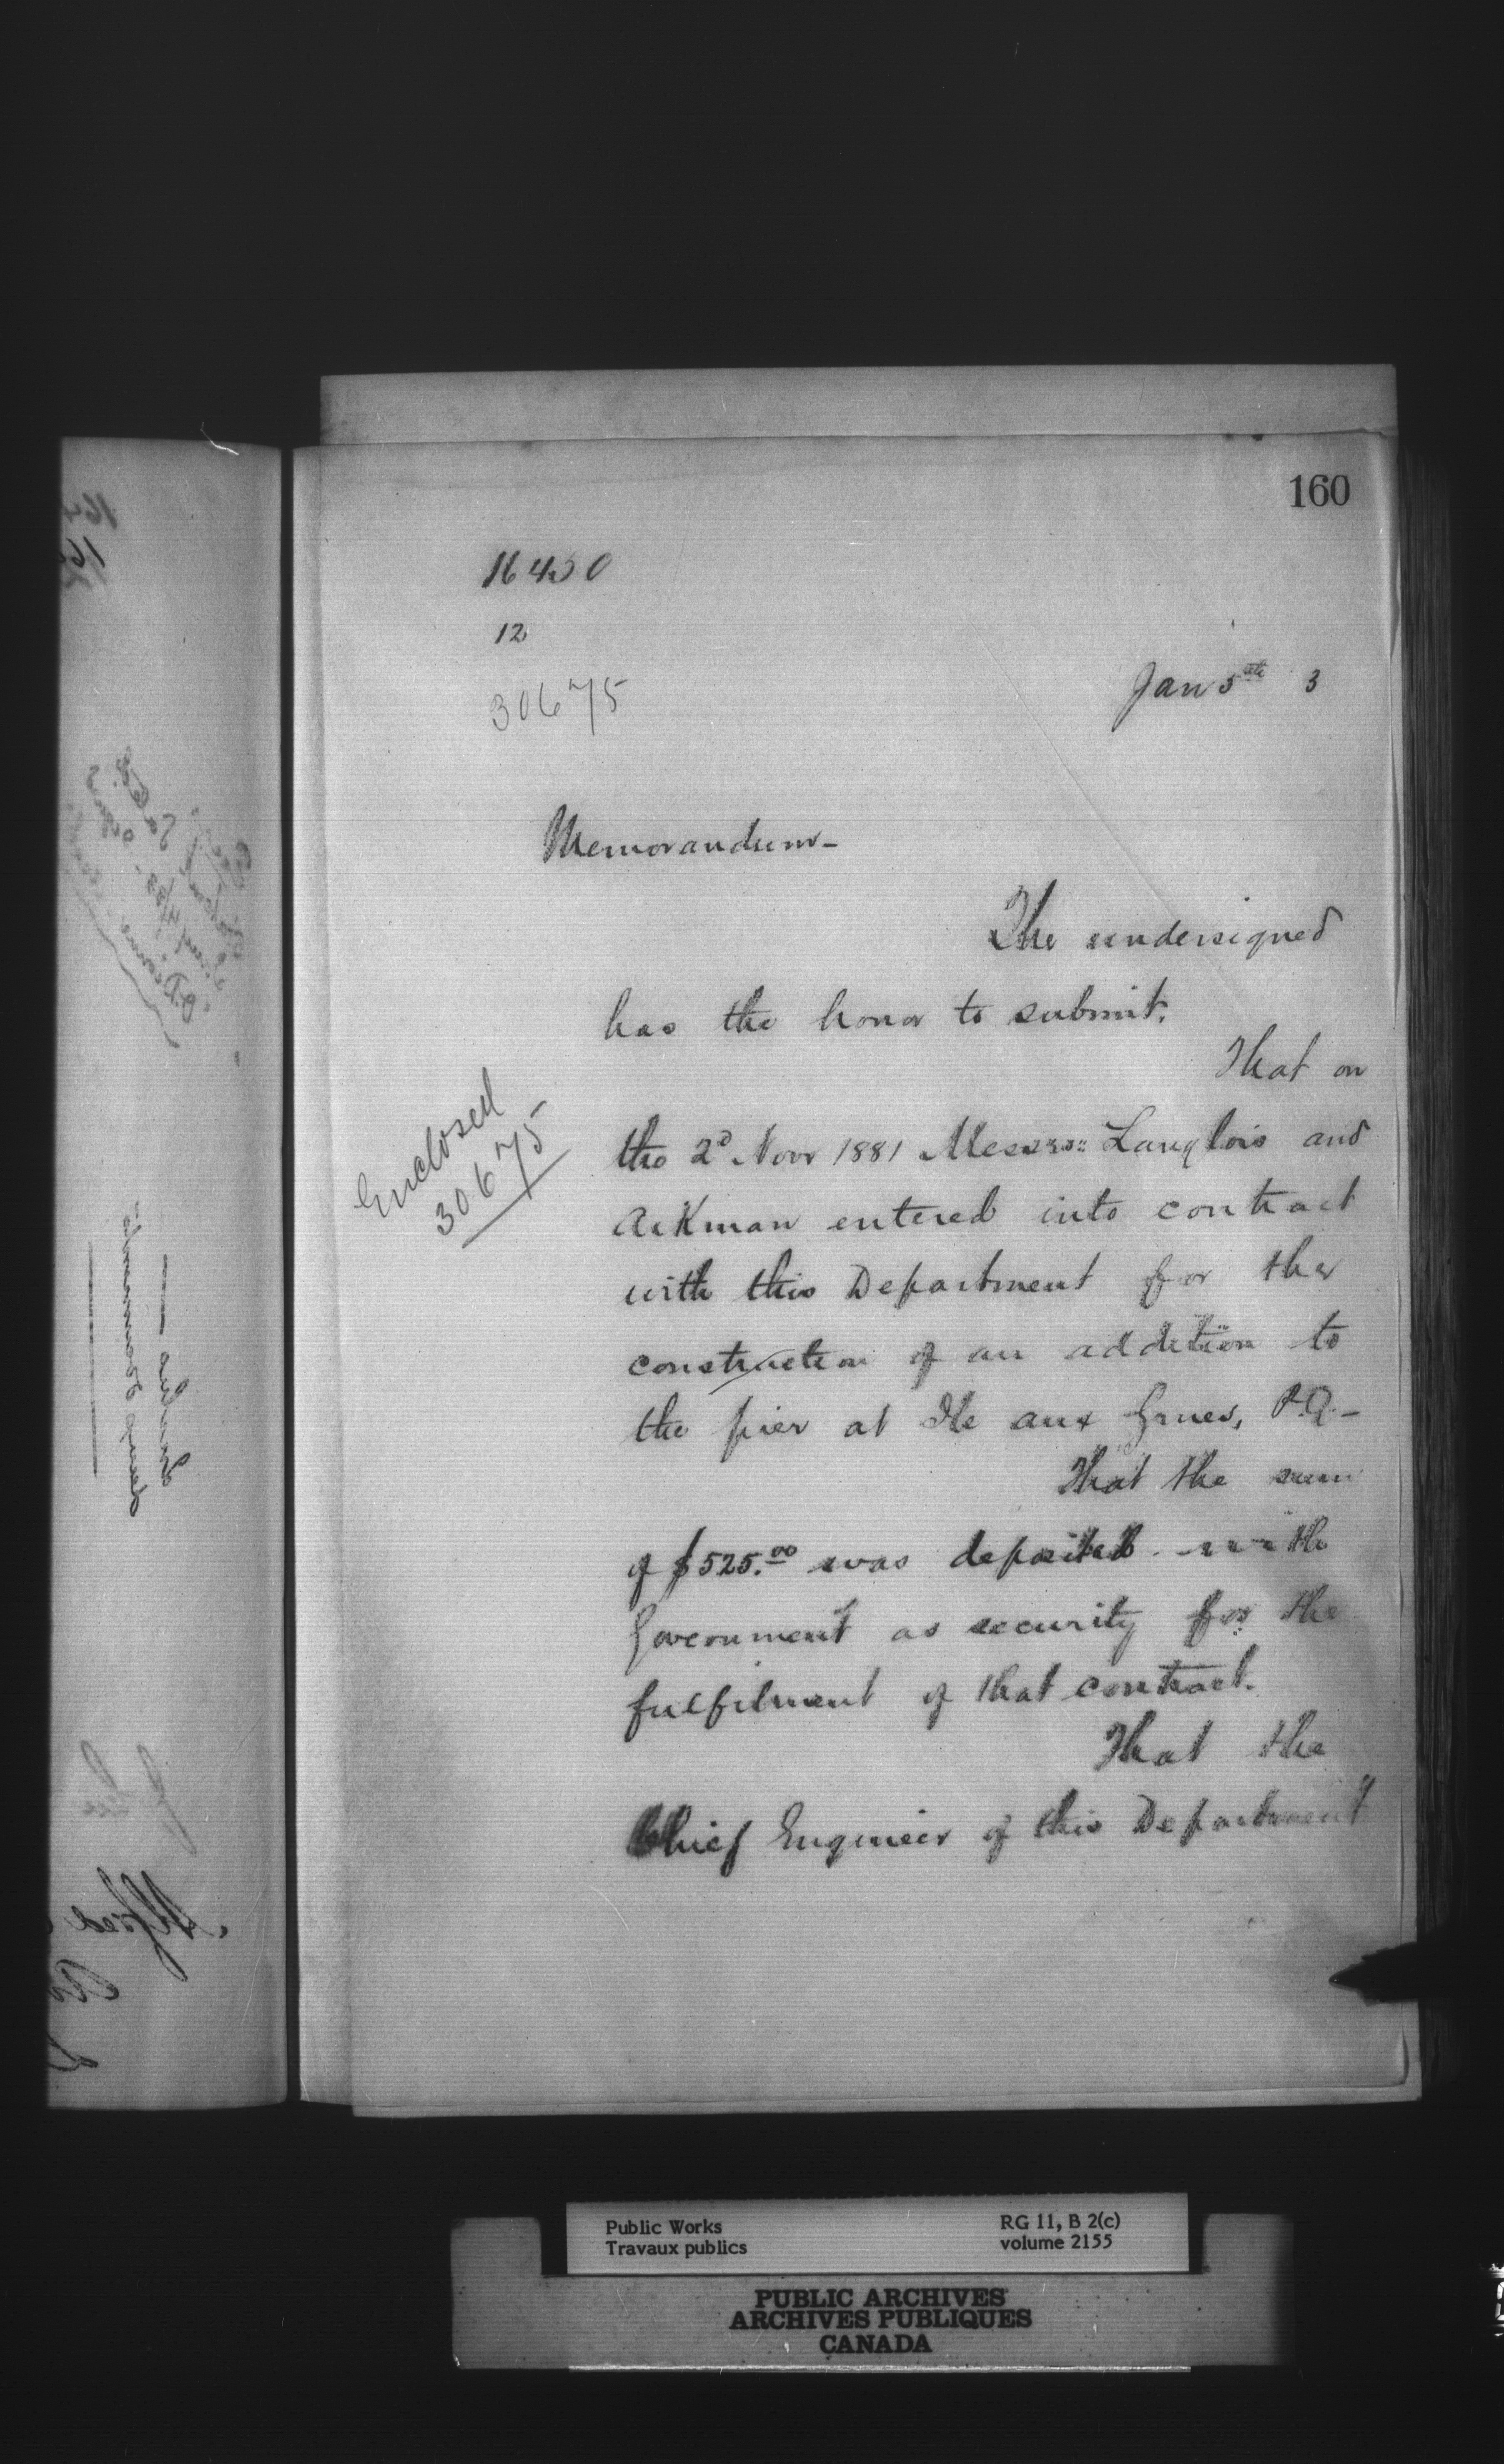 160
16450
12
30675
Jan 5th 3
Memorandum-
The undersigned
has the honor to submit.
That on
Enclosed
30675
the 2d Novr 1881 Messrs: Langlois and
Aikman entered into contract
with this Department for the
construction of an addition to
the pier at Ile aux Grues, P.Q.-
That the sum
of $525.00 was deposited with
Government as security for the
fulfilment of that contract.
That the
Chief Engineer of this Department
Public Works
Travaux publics
RG 11, B 2(c)
volume 2155
PUBLIC ARCHIVES
ARCHIVES PUBLIQUES
CANADA